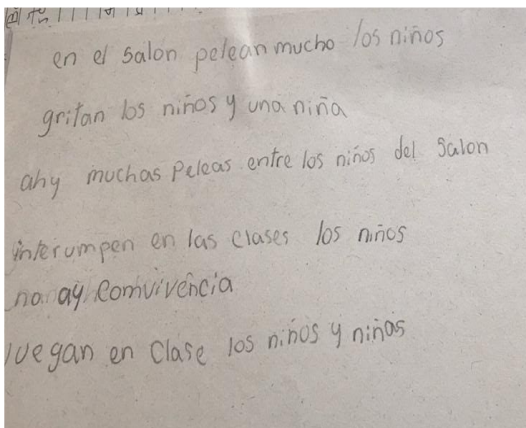 en el salon pelean mucho los niños
gritan los niños y una niña
ahy muchas peleas entre los niños del salon
interumpen en las clases los niños
no ay comvivencia
juegan en clase los niños y niñas